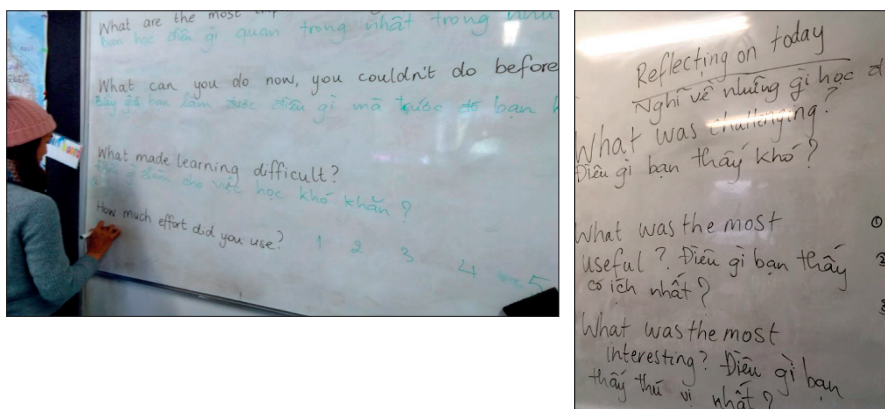 What are the most
bạn học điều gì quan trọng nhất trong
What can you do now, you couldn't do before
Bây giờ bạn làm được điều gì mà trước đó bạn
What made learning difficult?
gì làm cho việc học khó khăn?
How much effort did you use? 1 2 3 4 5
Reflecting on today
Nghĩ về những gì học
What was challenging?
Điều gì bạn thấy khó?
What was the most
useful? Điều gì bạn thấy
có ích nhất?
What was the most
interesting? Điều gì bạn
thấy thú vị nhất?